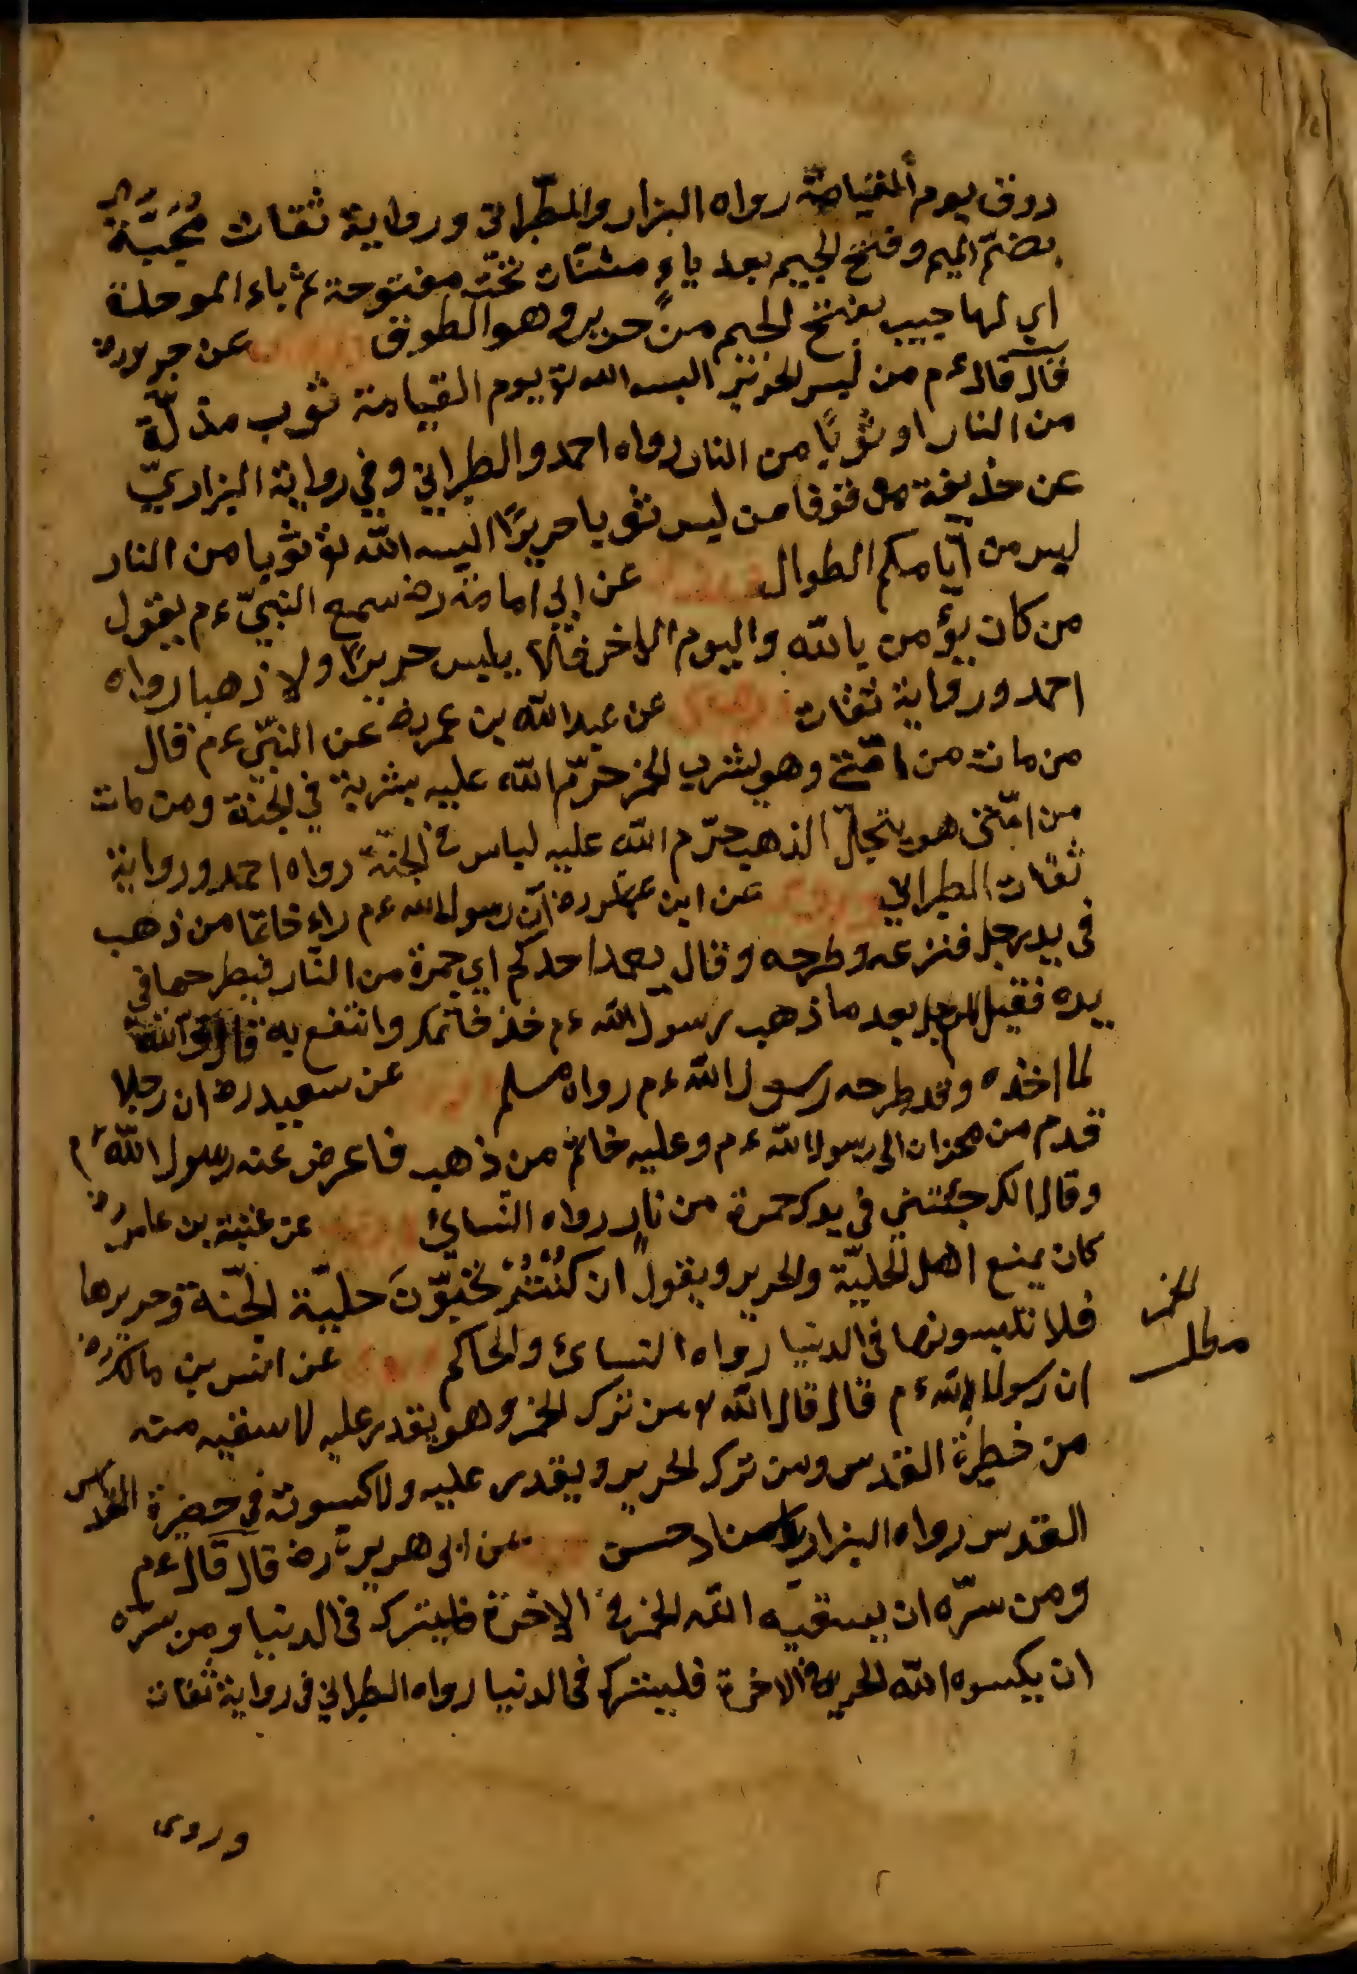 يوم القيامة رواه البزار والطبراني ورواية ثقات مُجَيَّبَة
بضمّ الميم وفتح الجيم بعد ياءٍ مثنّات تحت مفتوحة ثم باء الموحدة
اي لها جيب بفتح الجيم من حرير وهو الطوق عن جويرية
قال قال ءم من لبس الحرير البسه الله تع يوم القيامة ثوب مذلّة
من النار او ثوبًا من النار رواه احمد والطبراني وفي رواية البزار
عن حذيفة موقوفا من لبس ثوبا حريرًا البسه الله تع ثوبا من النار
ليس من ايّامكم الطوال عن ابي امامة رض سمع النبيّ ءم يقول
من كان يؤمن بالله واليوم الاخر فلا يلبس حريرًا ولا ذهبا رواه
احمد ورواية ثقات وروى عن عبد الله بن عمر رض عن النبيّ ءم قال
من مات من امّتي وهو يشرب الخمر حرّم الله عليه شربة في الجنّة ومن مات
من امّتي هو يتحلّ الذهب حرّم الله عليه لباس في الجنّة رواه احمد ورواية
ثقات الطبراني عن ابن عبّاس رض انّ رسول الله ءم راى خاتما من ذهب
في يد رجل فنزعه وطرحه وقال يعمد احدكم اي جمرة من النار فيطرحها في
يده فقيل للرجل بعد ما ذهب رسول الله ءم خذ خاتمك وانتفع به قال والله
لما اخذه وقد طرحه رسول الله ءم رواه مسلم عن سعيد رض ان رجلا
قدم من نجران الى رسول الله ءم وعليه خاتم من ذهب فاعرض عنه رسول الله ءم
وقال انك جئتني في يدك جمرة من نار رواه النسائ عن عقبة بن عامر رض
كان يمنع اهل الحليّة والحرير ويقول ان كُنْتُمْ تحبّونَ حليّة الجنّة وحريرها
فلا تلبسونها في الدنيا رواه النسائ والحاكم عن انس بن مالك رض
ان رسول الله ءم قال قال الله من ترك الخمر وهو يقدر عليه لاسقيه منه
من خطيرة القدس ومن ترك الحرير ويقدر عليه ولاكسوته في حضيرة القدس
القدس رواه البزار باسناد حسن عن ابى هريرة رض قال قال ءم
ومن سرّه ان يسقيه الله الخمر في الاخرة فليترك في الدنيا ومن سرّه
ان يكسوه الله الحرير في الاخرة فليتركها في الدنيا رواه الطبراني في رواية ثقات
الخمر
مطلب
وروى